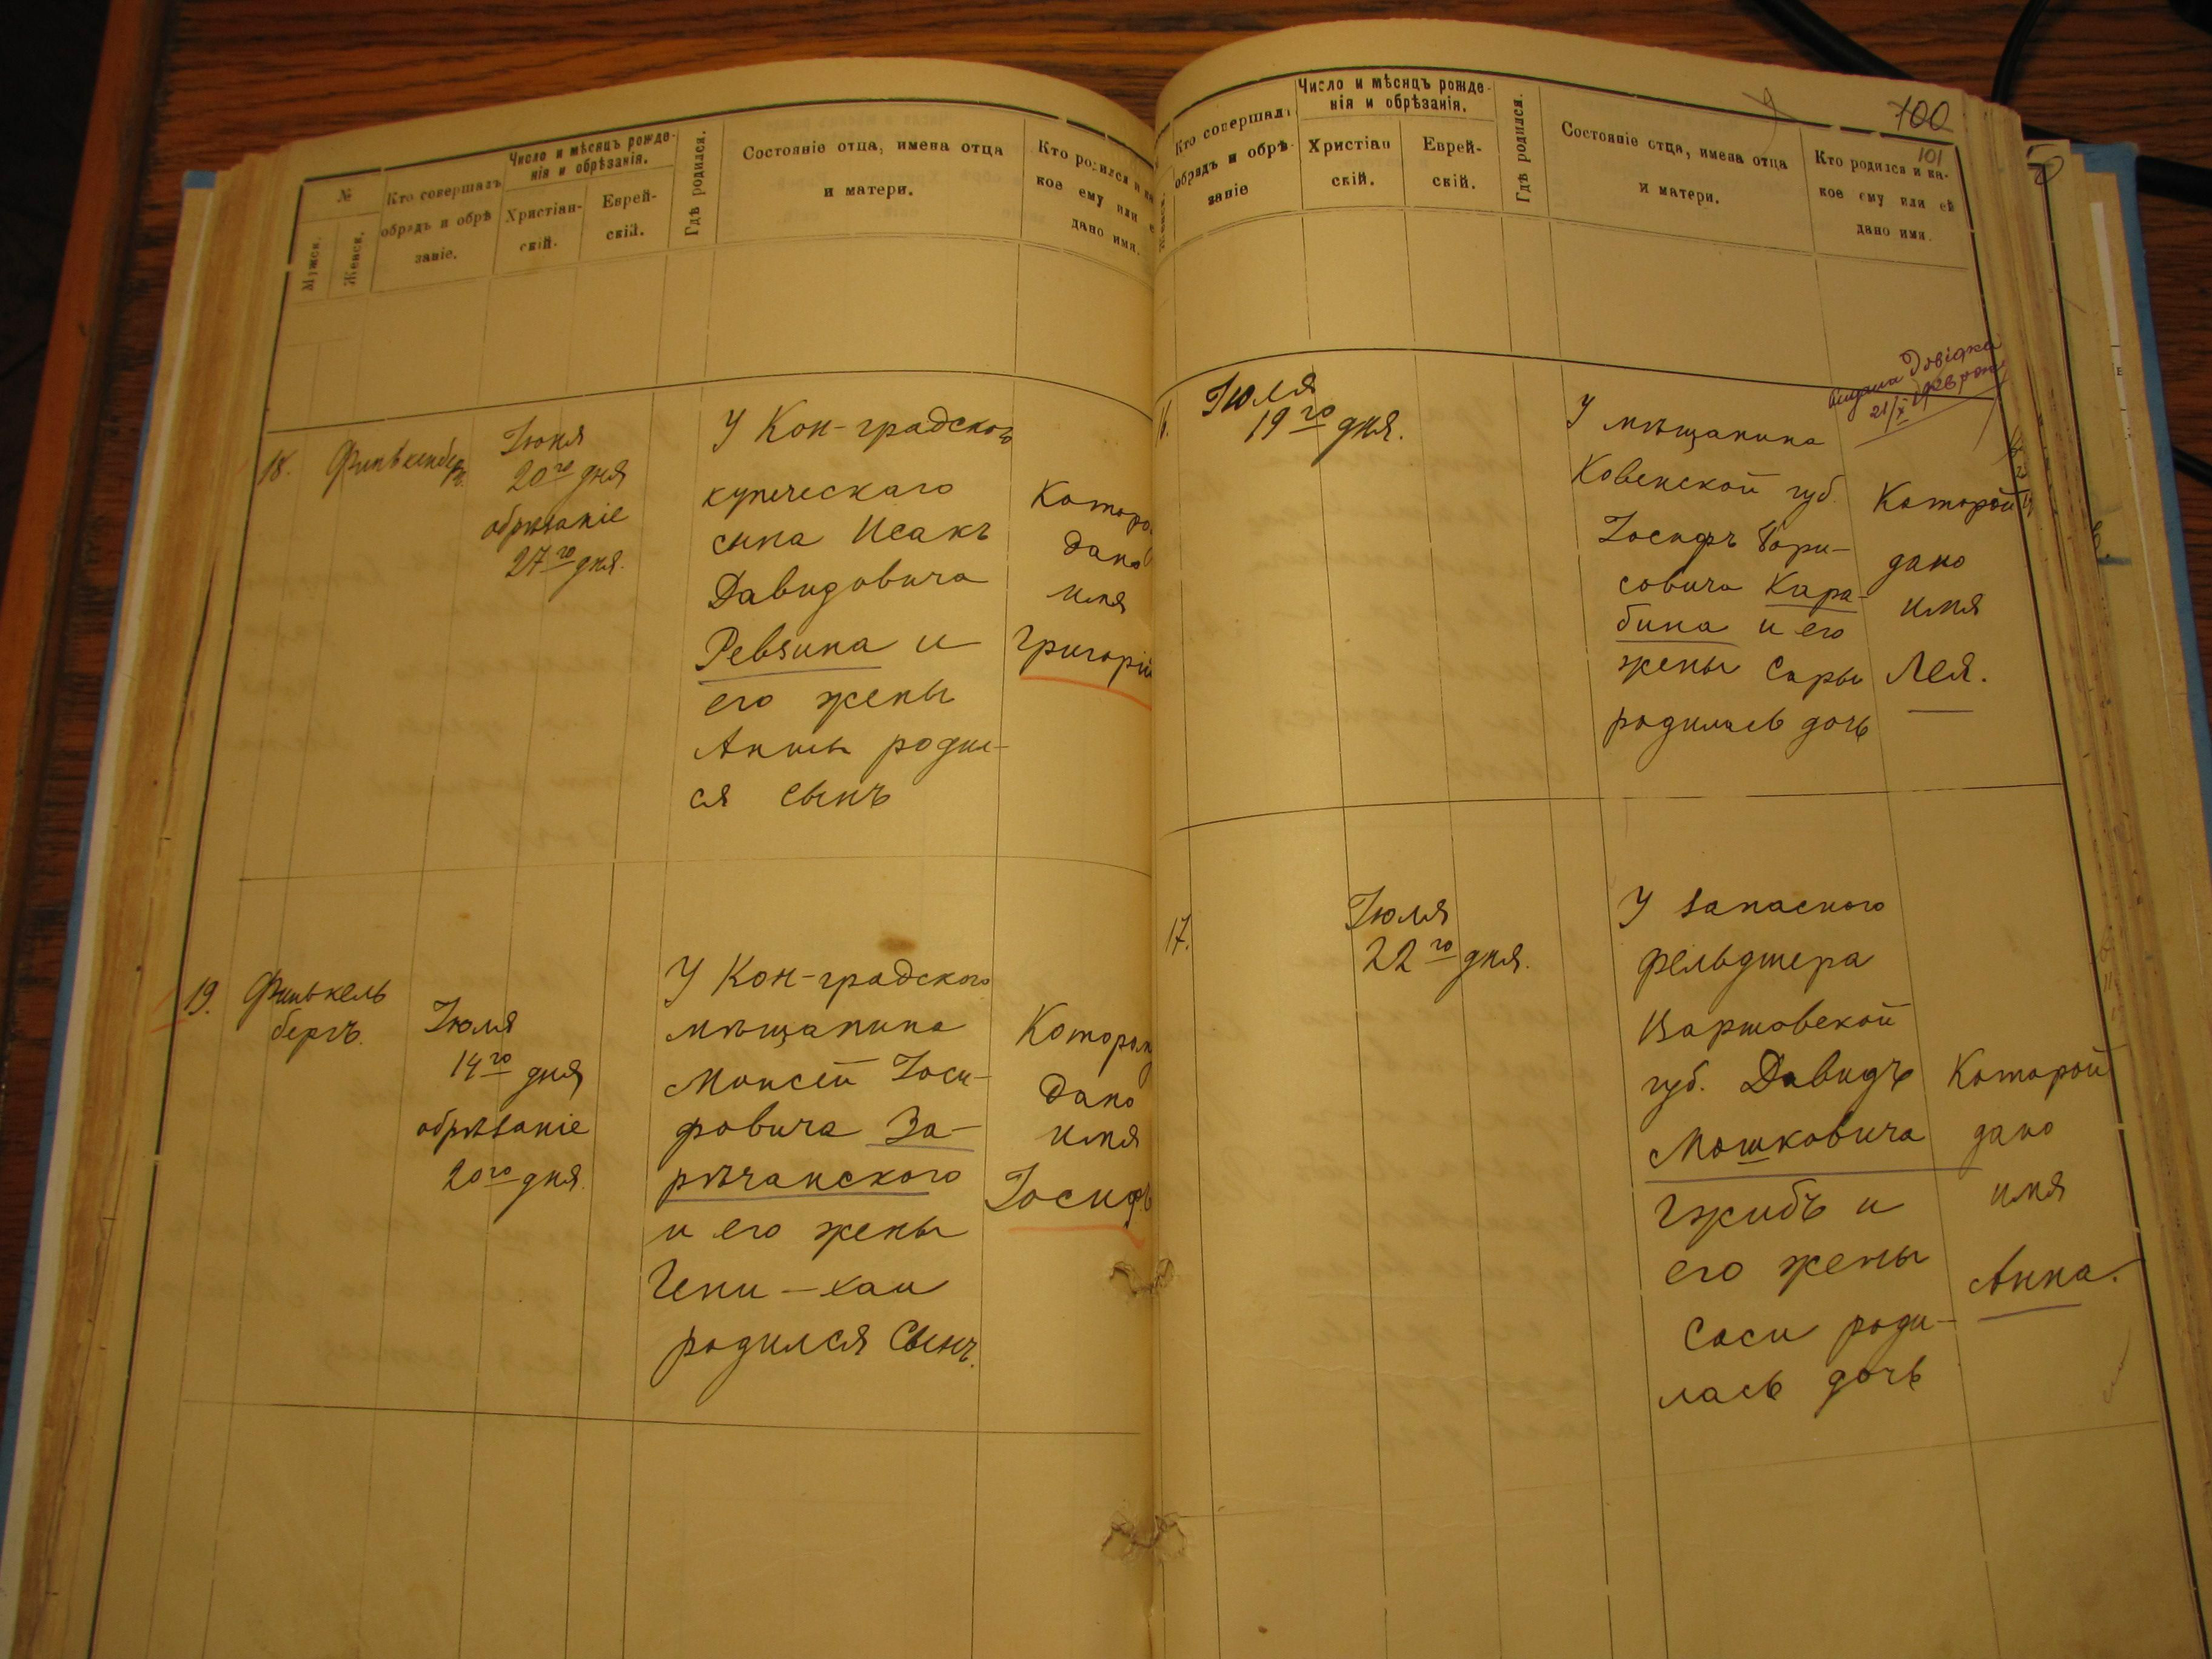 №
Мужск.
Женск.
Кто совершалъ
обрядъ и обрѣ
заніе.
Число и мѣсяцъ рожде-
нія и обрѣзанія.
Христіан-
скій.
Еврей-
скій.
Гдѣ родился.
Состояніе отца, имена отца
и матери.
Кто родился и ка
кое ему или е
дано имя.
18.
Финькенбергъ.
Іюня
20го дня
обрѣзаніе
27го дня.
У Кон-градского
купеческаго
сына Исакъ
Давидовича
Ревзина и
его жены
Анны родил-
ся сынъ
Которо
дано
имя
Григорій
19.
Финькель
бергъ.
Іюля
14го дня
обрѣзаніе
20го дня.
У Кон-градского
мѣщанина
Моисей Іоси-
фовича За-
рѣчанского
и его жены
Гени-хаи
родился Сынъ.
Котором
дано
имя
Іосифъ
Женск.
Кто совершалъ
обрядъ и обрѣ-
заніе
Число и мѣсяцъ рожде-
нія и обрѣзанія.
Христіан
скій.
Еврей-
скій.
Гдѣ родился.
Состояніе отца, имена отца
и матери.
Кто родился и ка-
кое ему или ей
дано имя.
100
101
видана Довідка
21/X 1928 року
16.
Іюля
19го дня.
У мѣщанина
Ковенской губ.
Іосифъ Бори-
совича Кара-
бина и его
жены Сары
родилась дочь
Которой
дано
имя
Лея.
17.
Іюля
22го дня.
У запасного
фельдшера
Варшовской
губ. Давидъ
Мошковича
Гжибъ и
его жены
Соси роди-
лась дочь
Которой
дано
имя
Анна.